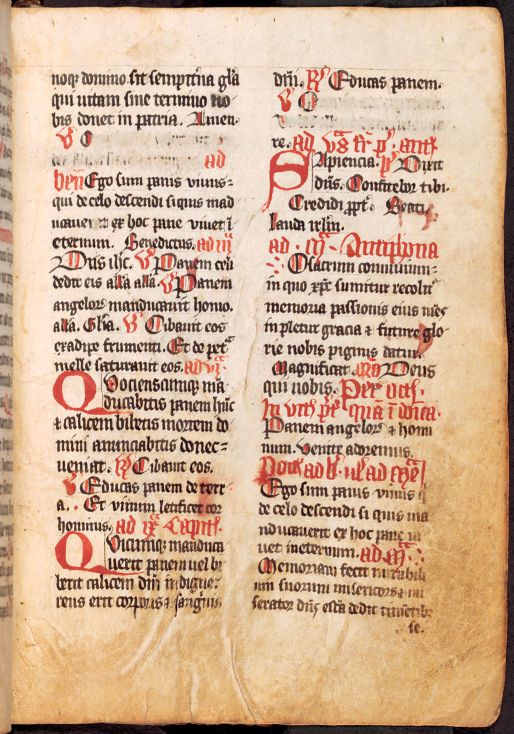 noqȝ domino sit sempit̄na gl̄a
qui uitam sine termino no
bis donet in patria. Amen.
V̄ O
ad
ben̄ Ego sum panis viuus
qui de celo descendi si quis mad
ucauerit ex hoc pane viuet ī
eternum. Benedictus. ad iij
Dn̄s ih̄c. V̄ Panem celi
dedit eis all̄a all̄a. V̄ Panem
angeloꝝ manducauit homo.
all̄a. Gl̄ia. V̄ Cibauit eos
ex adipe frumenti. Et de pet̄
melle saturauit eos. ad vj.
Quociens cumqȝ ma
ducabitis panem hūc
et calicem bibetis mortem do
mini anunciabitis donec
ueniat. R̄ Cibauit eos.
V̄ Educas panem de terr
a. Et vinum letificet cor
hominis. ad ix Capitl̄.
Quicumqȝ manduca
uerit panem uel bi
berit calicem dn̄i indigne
reus erit corporis et sanguis
dn̄i. R̄ Educas panem.
V̄ O
re. ad v̄s ant̄
Sapiencia. p̄s Dixit
dn̄s. Confitebor tibi.
Credidi ꝓpt̄. Beati.
lauda irl̄m.
ad m̄ Antiphona
O sacrum conuiuium
in quo xp̄c sumitur recolit᷑
memoria passionis eius mēs
inpletur gracia et future glo
rie nobis pignus datur.
Magnificat. Deus
qui nobis. Per oct̄.
Panem angeloꝝ et homi
num. Venite adoremus.
Ego sum panis viuus q̄
de celo descendi si quis ma
nducauerit ex hoc pane ui
uet ineternum. ad m̄
Memoriam fecit mirabili
um suorum misericors et mi
serator dn̄s escā dedit timētibꝫ
se.